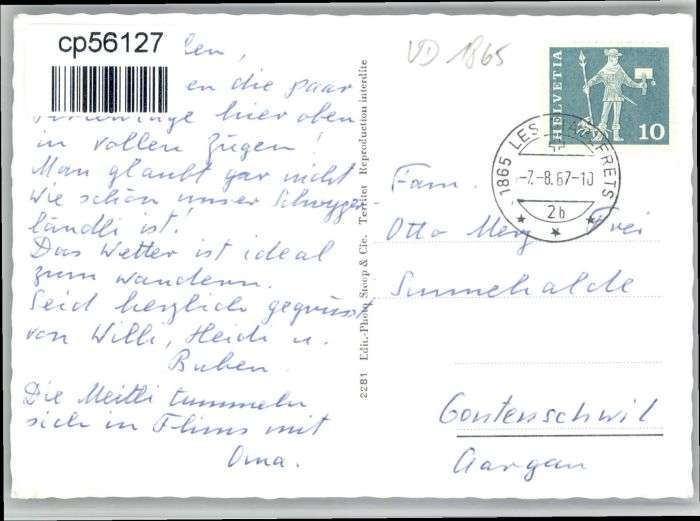 cp56127
VD 1865
en die paar
hier oben
in vollen Zügen!
Man glaubt gar nicht
wie schön unser Schwyzer-
ländli ist!
Das Wetter ist ideal
zum wandern.
Seid herzlich gegrüsst
von Willi, Heidi u.
Buben.
Die Meitli tummeln
sich in Flims mit
Oma.
2281 Edit.-Photo Stoop & Cie. Territet Reproduction interdite
HELVETIA
10
1865 LES
-7.-8.67-10
2b
Fam.
Otto Merz Frei
Sunnehalde
Gontenschwil
Aargau